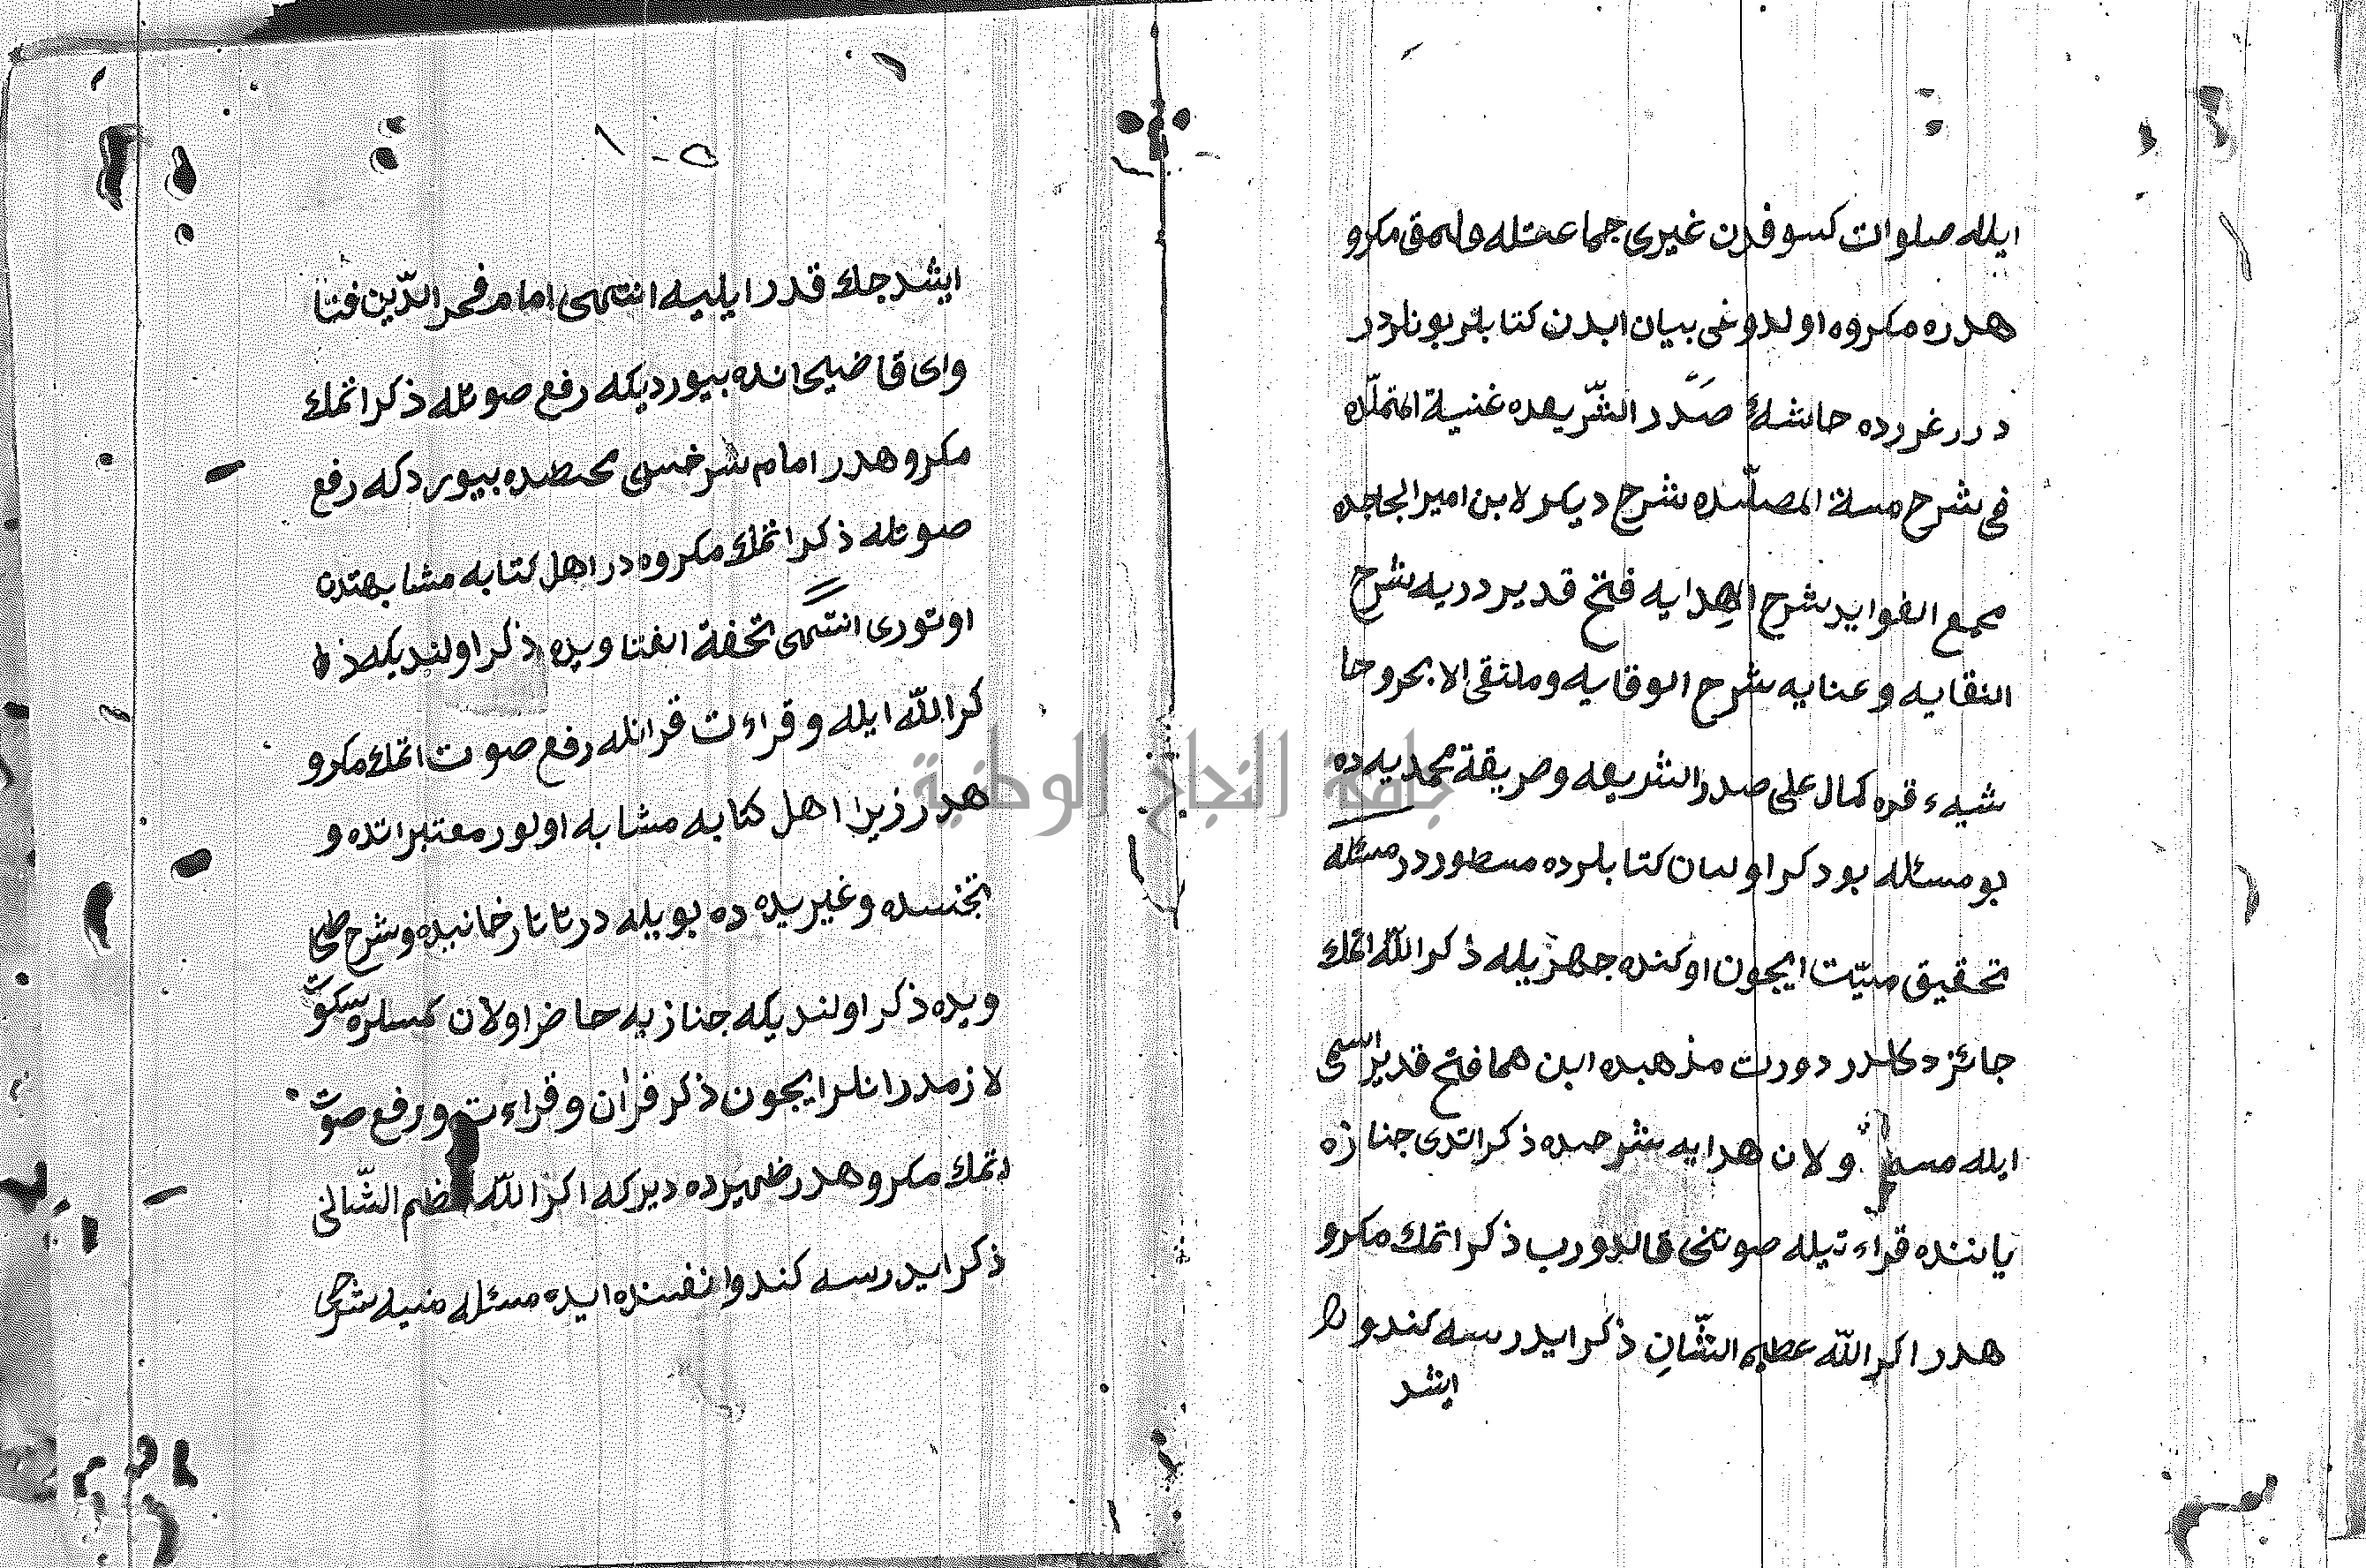 ايله صلوات كسوفدن غيرى جماعتله قلمق مكرو
هدره مكروه اولدوغى بيان ايدن كتابلر بونلردر
درر غررده حاشيهٔ صدر الشّريعه ده غنية المتملّده
فى شرح منية المصلّيده شرح ديكر لابن امير الحاجده
مجمع الفوايد شرح الهدايه فتح قدير درريه شرح
النقايه و عنايه شرح الوقايه و ملتقى الابحر و حا
شيهء قره كمال على صدر الشريعه و طريقة محمديه ده
بو مسئله بو ذكر اولنان كتابلرده مسطور در مسئله
تحقيق ميّت ايچون اوكنده جهر يله ذكر الله اتمك
جائز دكلدر دورت مذهبده ابن هما فتح قدير اسمى
ايله مسمى ولان هدايه شرحنده ذكر اتدى جنازه
ياننده قراءتيله صوتنى قالدورب ذكر اتمك مكرو
هدر اكر الله عظيم الشّان ذكر ايدرسه كندو
ايشد
١٠٥
ايشدجك قدر ايليه انتهى امام فخر الدّين فتا
واى قاضيخانده بيورديكه رفع صوتله ذكر اتمك
مكروهدر امام سرخسى محيطده بيوردكه رفع
صوتله ذكر اتمك مكروه در اهل كتابه مشابهتدن
اوتورى انتهى تحفة الفتاويده ذكر اولنديكه ذ
كر الله ايله و قراءت قرانله رفع صوت اتمك مكرو
هدر زيرا اهل كتابه مشابه اولور معتبراتده و
تجنيسده و غيريده ده بويله در تاتارخانيده و شرح طحا
ويده ذكر اولنديكه جنازيه حاضر اولان كمسلره سكوت
لازمدر انلر ايچون ذكر قران و قراءت و رفع صوت
اتمك مكروهدر ظهيرده ديركه اكر الله عظم الشّانى
ذكر ايدرسه كندو نفسنده ايده مسئله منيه شرحى
جامعة النجاح الوطنية